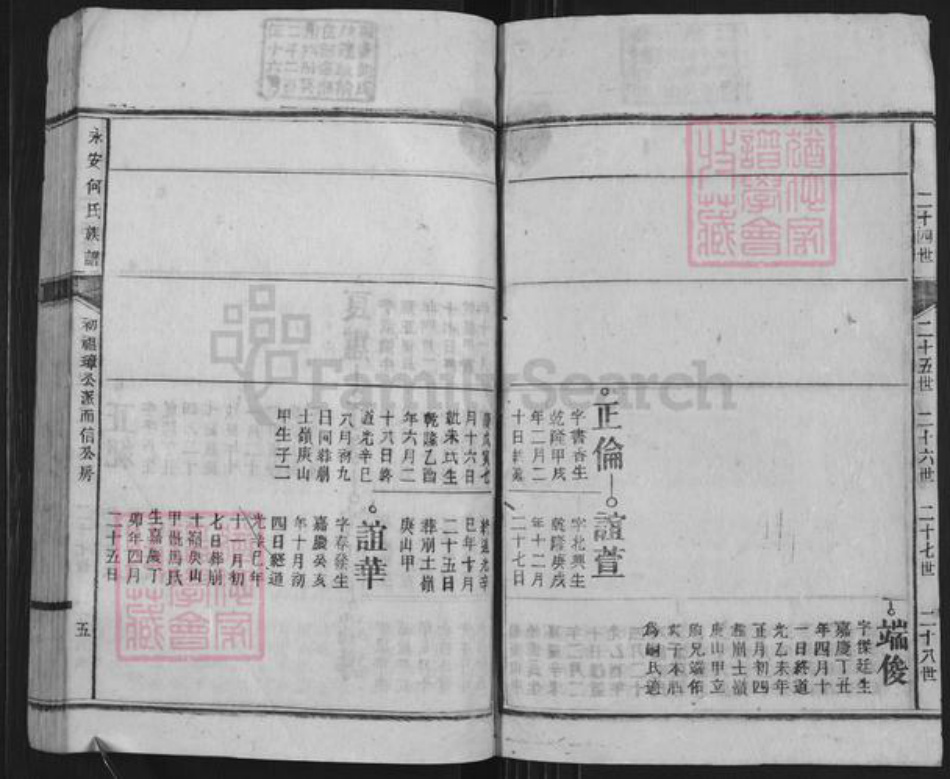 二十四世
二十五世
二十六世
二十七世
二十八世
端俊
字傑廷生
嘉慶丁丑
年四月十
一日終道
光乙未年
正月初四
葬崩土嶺
庚山甲立
胞兄端佑
次子本
為嗣氏適
正倫
字書香生
乾隆甲戌
年二月二
十日
誼萱
字北興生
乾隆庚戌
年十二月
二十七日
月十六日
氏生
乾隆乙酉
年六月二
十六日終
道光辛巳
八月初九
日同葬崩
土嶺庚山
甲生子二
終道光辛
巳年十月
二十五日
葬崩土嶺
庚山甲
誼華
字春發生
嘉慶癸亥
年十月初
四日終道
光辛巳年
十一月初
七日葬崩
土嶺庚山
甲娶馬氏
生嘉慶丁
卯年四月
二十五日
永安何氏族譜
初禔璋公派而信公房
五
譜學會
收藏
FamilySearch